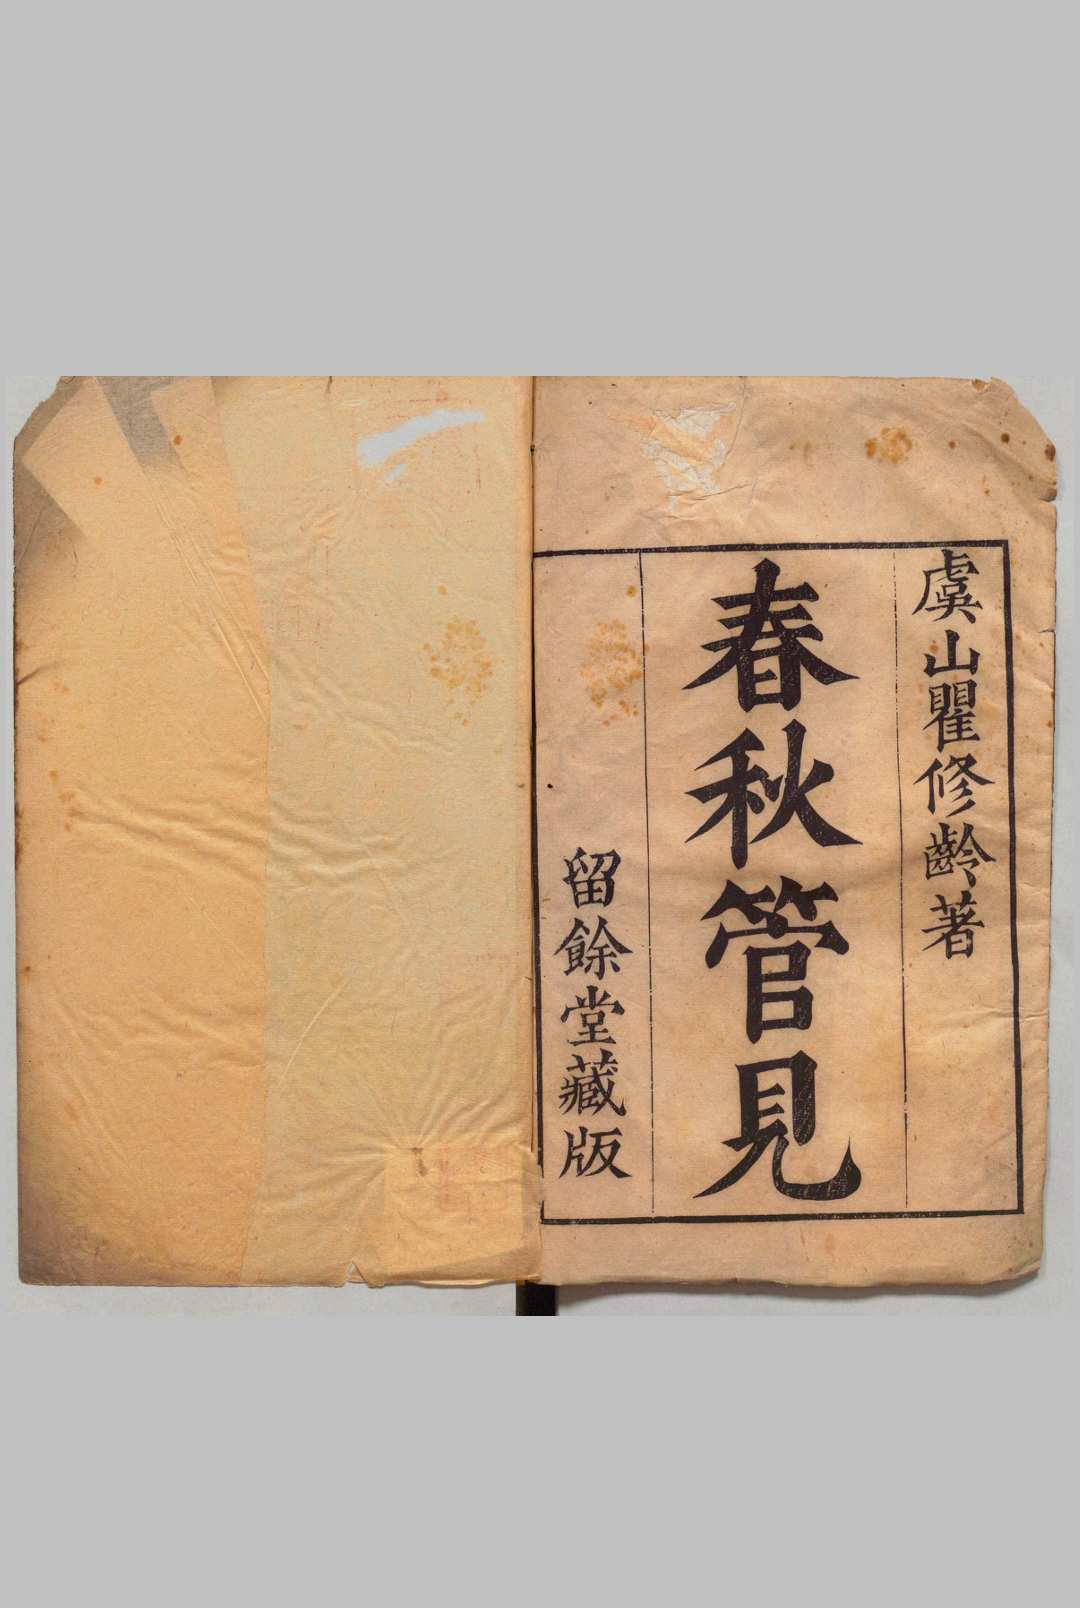 虞山瞿修齡著
春秋管見
留餘堂藏版